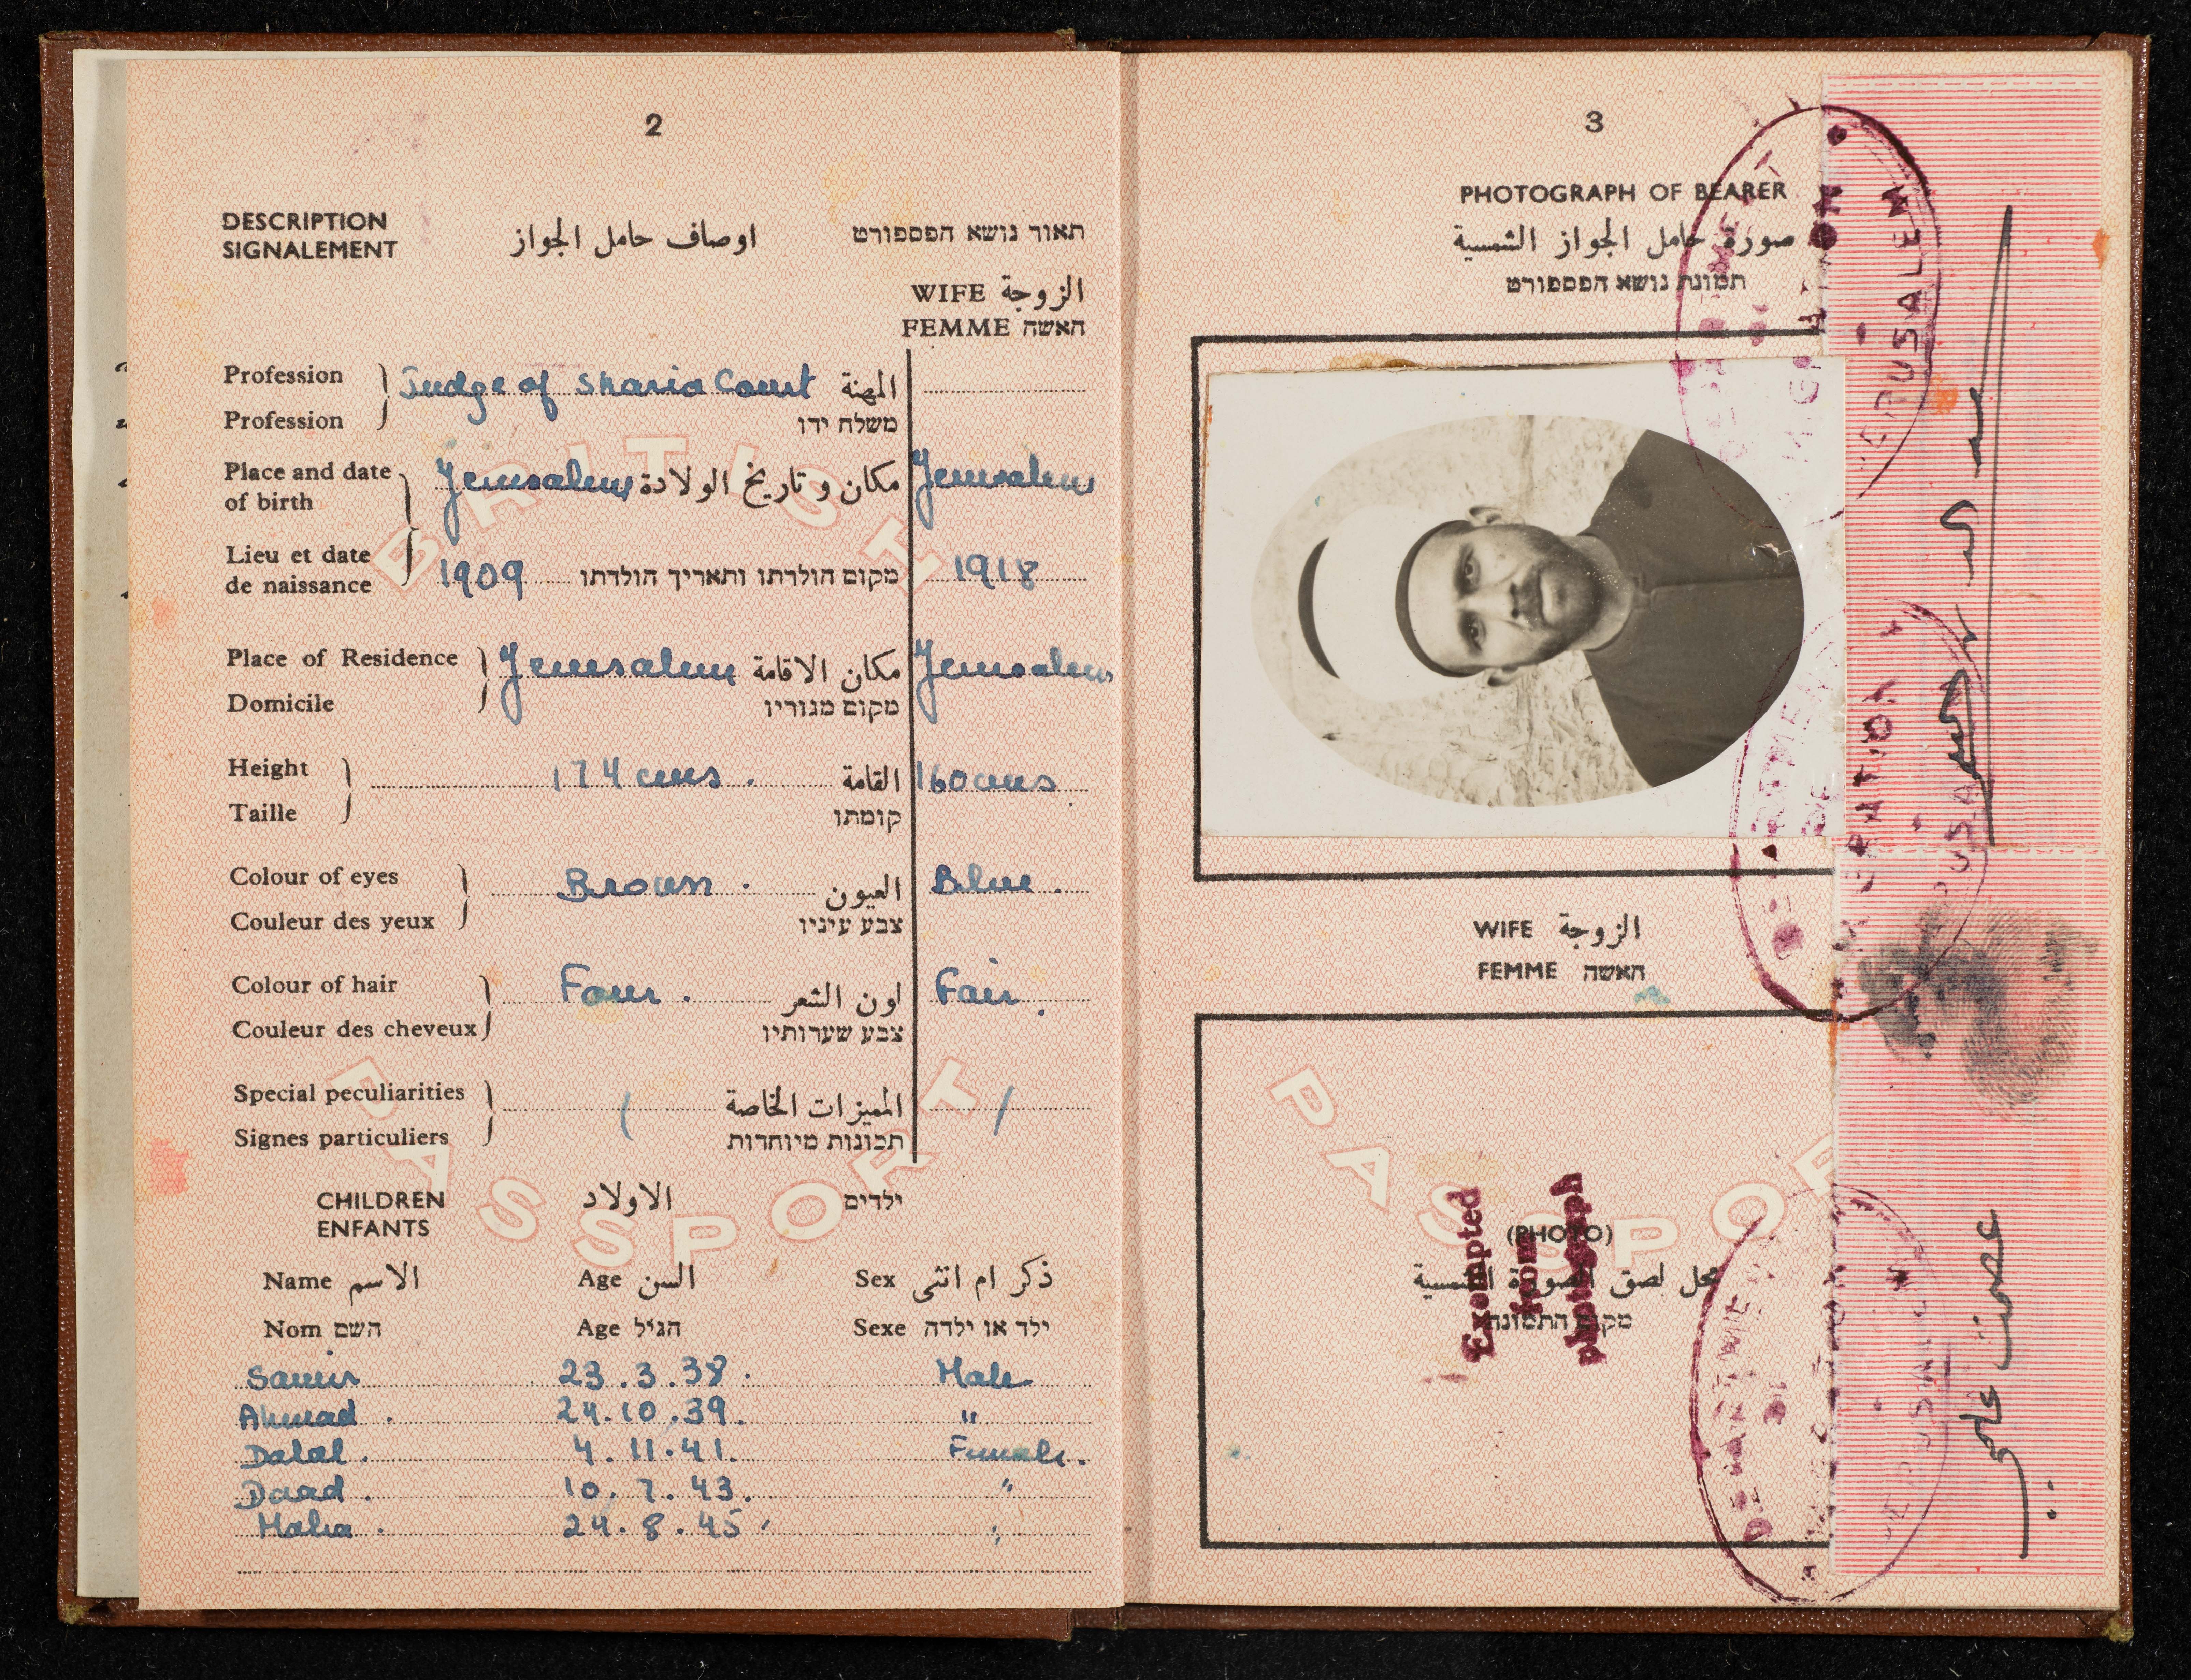 2
DESCRIPTION
SIGNALEMENT
اوصاف حامل الجواز
תאור נושא הפספורט
WIFE الزوجة
FEMME האשה
Profession
Profession
Judge of Sharia Court
المهنة
משלח ידו
Place and date
of birth
Jerusalem
مكان و تاريخ الولادة
Jerusalem
Lieu et date
de naissance
1909
מקום הולדתו ותאריך הולדתו
1918
Place of Residence
Domicile
Jerusalem
مكان الاقامة
Jerusalem
מקום מגוריו
Height
Taille
174 cms.
القامة
160 cms
קומתו
Colour of eyes
Couleur des yeux
Brown.
العيون
Blue.
צבע עיניו
Colour of hair
Couleur des cheveux
Fair.
لون الشعر
Fair.
צבע שערותיו
Special peculiarities
Signes particuliers
المميزات الخاصة
תכונות מיוחדות
BRITISH
PASSPORT
CHILDREN
ENFANTS
الاولاد
ילדים
Name الاسم Age السن Sex ذكر ام انثى
Nom השם Age הגיל Sexe ילד או ילדה
Samir 23.3.38. Male
Ahmad. 24.10.39. "
Dalal. 4.11.41. Female.
Daad. 10.7.43. "
Maha. 24.8.45 "
3
PHOTOGRAPH OF BEARER
صورة حامل الجواز الشمسية
תמונת נושא הפספורט
WIFE الزوجة
FEMME האשה
PASSPOR
(PHOTO)
محل لصق الصورة الشمسية
מקום התמונה
Exempted
from
photograph
DEPARTMENT
OF
MIGRATION
JERUSALEM
عصمت علمي